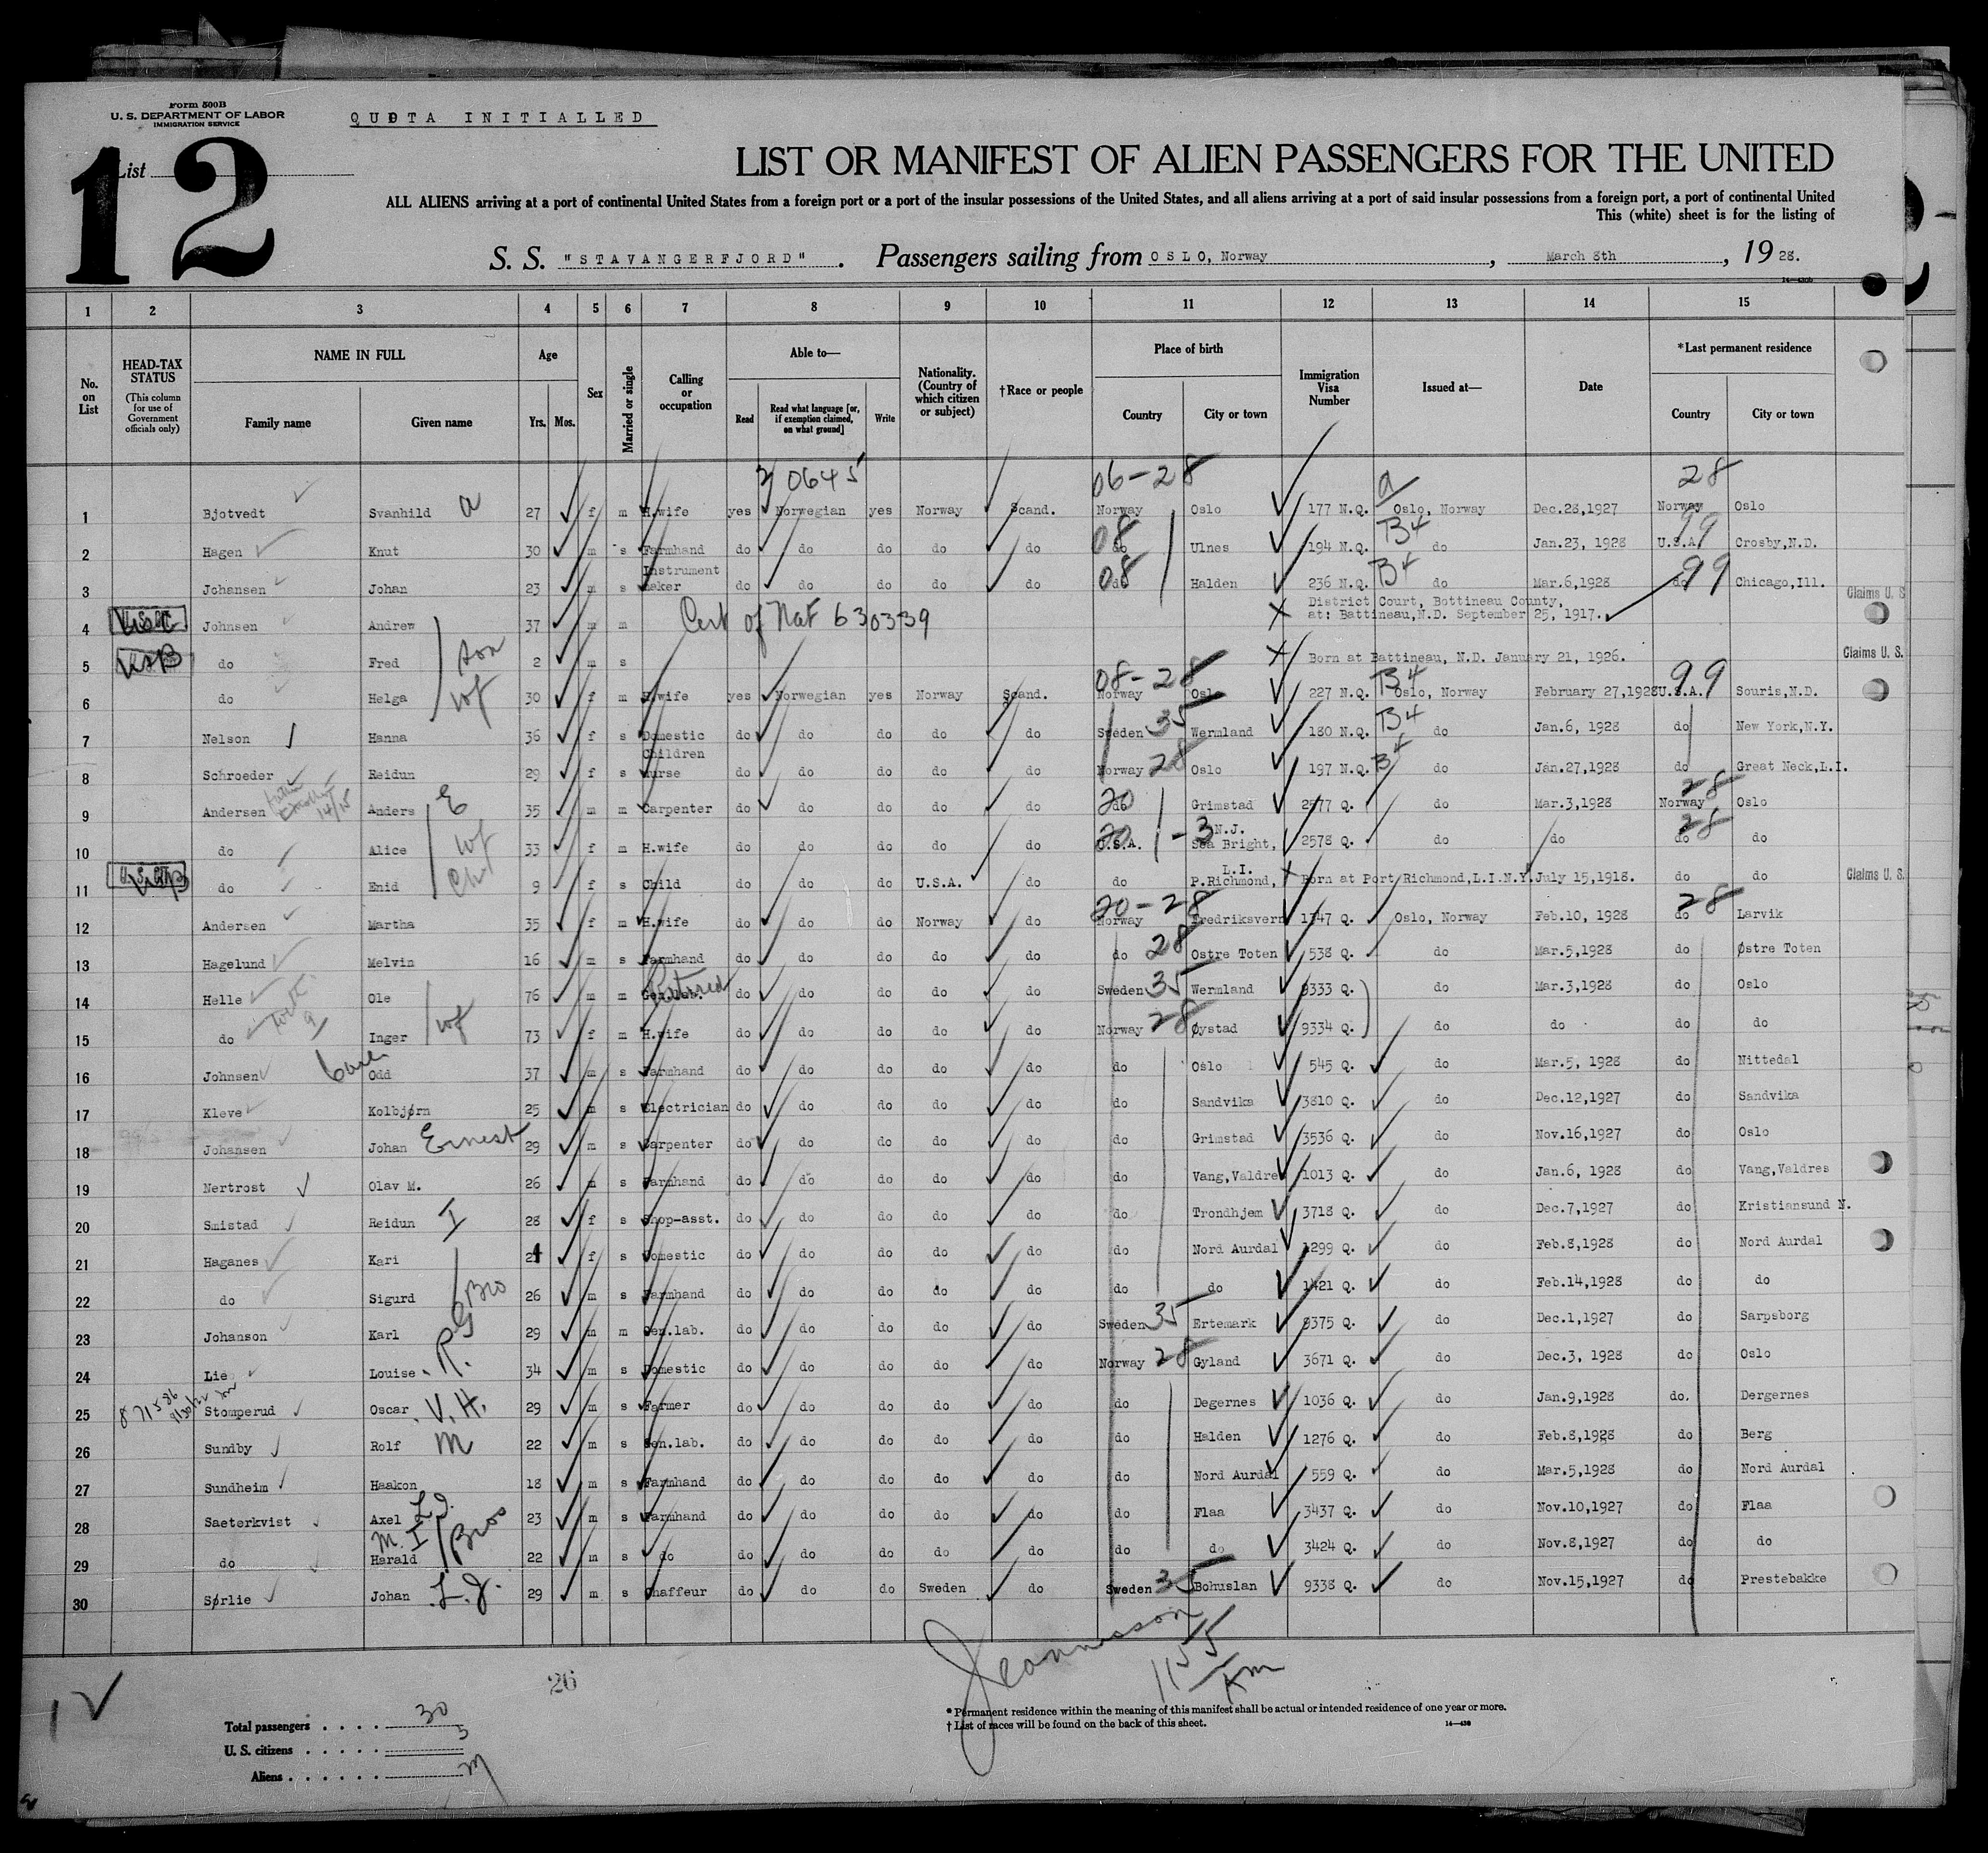 Form 500B
U. S. DEPARTMENT OF LABOR
IMMIGRATION SERVICE
QUOTA INITIALLED
List 12
LIST OR MANIFEST OF ALIEN PASSENGERS FOR THE UNITED
ALL ALIENS arriving at a port of continental United States from a foreign port or a port of the insular possessions of the United States, and all aliens arriving at a port of said insular possessions from a foreign port, a port of continental United
This (white) sheet is for the listing of
S. S. "STAVANGERFJORD". Passengers sailing from OSLO, Norway, March 8th, 1928.
14—430b
1 2 3 4 5 6 7 8 9 10 11 12 13 14 15
No. on List HEAD-TAX STATUS (This column for use of Government officials only) NAME IN FULL Family name Given name Age Yrs. Mos. Sex Married or single Calling or occupation Able to— Read Read what language [or, if exemption claimed, on what ground] Write Nationality. (Country of which citizen or subject) †Race or people Place of birth Country City or town Immigration Visa Number Issued at— Date *Last permanent residence Country City or town
20645 06-28 a 28
1 Bjotvedt Svanhild a 27 f m H.wife yes Norwegian yes Norway Scand. Norway Oslo 177 N.Q. Oslo, Norway Dec.28,1927 Norway Oslo
2 Hagen Knut 30 m s Farmhand do do do do do 08 do Ulnes 194 N.Q. B4 do Jan.23, 1928 U.S.A. 99 Crosby,N.D.
3 Johansen Johan 23 m s Instrument maker do do do do do 08 do Halden 236 N.Q. B4 do Mar.6,1928 do 99 Chicago,Ill. Claims U. S
4 Johnsen Andrew 37 m m Cert of Nat 630339 X District Court, Bottineau County, at: Battineau,N.D. September 25, 1917.
5 USB do Fred son 2 m s X Born at Battineau, N.D. January 21, 1926. Claims U. S.
6 do Helga wf 30 f m H.wife yes Norwegian yes Norway Scand. 08-28 Norway Oslo 227 N.Q. B4 Oslo, Norway February 27,1928 U.S.A. 99 Souris,N.D.
7 Nelson Hanna 36 f s Domestic do do do do do Sweden 35 Wermland 180 N.Q. B4 do Jan.6, 1928 do New York,N.Y.
8 Schroeder Reidun 29 f s Children nurse do do do do do Norway 28 Oslo 197 N.Q. B4 do Jan.27,1928 do Great Neck,L.I.
9 Andersen Anders E 35 m m Carpenter do do do do do 20 do Grimstad 2577 Q. do Mar.3,1928 Norway 28 Oslo
10 do Alice wf 33 f m H.wife do do do do do 20 U.S.A. -3 N.J. Sea Bright, 2578 Q. do do do 28 do
11 USB do Enid Ch 9 f s Child do do do U.S.A. do do L.I. P.Richmond, X Born at Port Richmond,L.I.N.Y. July 15,1918. do do Claims U. S.
12 Andersen Martha 35 f m H.wife do do do Norway do 20-28 Norway Fredriksvern 1347 Q. Oslo, Norway Feb.10, 1928 do 28 Larvik
13 Hagelund Melvin 16 m s Farmhand do do do do do do 28 Ostre Toten 538 Q. do Mar.5,1928 do Østre Toten
14 Helle Ole 76 m m Gen.lab. Retired do do do do do Sweden 35 Wermland 9333 Q. do Mar.3,1928 do Oslo
15 do Inger wf 73 f m H.wife do do do do do Norway 28 Øystad 9334 Q. do do do do
16 Johnsen Odd 37 m s Farmhand do do do do do do Oslo 545 Q. do Mar.5, 1928 do Nittedal
17 Kleve Kolbjørn 25 m s Electrician do do do do do do Sandvika 3810 Q. do Dec.12,1927 do Sandvika
18 Johansen Johan Ernest 29 m s Carpenter do do do do do do Grimstad 3536 Q. do Nov.16,1927 do Oslo
19 Nertrost Olav M. 26 m s Farmhand do do do do do do Vang,Valdre 1013 Q. do Jan.6, 1928 do Vang,Valdres
20 Smistad Reidun I 28 f s Shop-asst. do do do do do do Trondhjem 3718 Q. do Dec.7,1927 do Kristiansund N.
21 Haganes Kari 24 f s Domestic do do do do do do Nord Aurdal 1299 Q. do Feb.8,1928 do Nord Aurdal
22 do Sigurd Bro 26 m s Farmhand do do do do do do do 1421 Q. do Feb.14,1928 do do
23 Johanson Karl G 29 m m Gen.lab. do do do do do Sweden 35 Ertemark 8375 Q. do Dec.1,1927 do Sarpsborg
24 Lie Louise R. 34 m s Domestic do do do do do Norway 28 Gyland 3671 Q. do Dec.3, 1928 do Oslo
25 Stomperud Oscar V.H. 29 m s Farmer do do do do do do Degernes 1036 Q. do Jan.9,1928 do. Dergernes
26 Sundby Rolf M 22 m s Gen.lab. do do do do do do Halden 1276 Q. do Feb.8,1928 do Berg
27 Sundheim Haakon 18 m s Farmhand do do do do do do Nord Aurdal 559 Q. do Mar.5,1928 do Nord Aurdal
28 Saeterkvist Axel L.J. 23 m s Farmhand do do do do do do Flaa 3437 Q. do Nov.10,1927 do Flaa
29 do Harald M. I Bros 22 m s do do do do do do do do 3424 Q. do Nov.8,1927 do do
30 Sørlie Johan L.J. 29 m s Chaffeur do do do Sweden do Sweden 35 Bohuslan 9338 Q. do Nov.15,1927 do Prestebakke
26
1155
Total passengers . . . . 30
U. S. citizens . . . . . 3
Aliens . . . . . .
* Permanent residence within the meaning of this manifest shall be actual or intended residence of one year or more.
† List of races will be found on the back of this sheet. 14—430